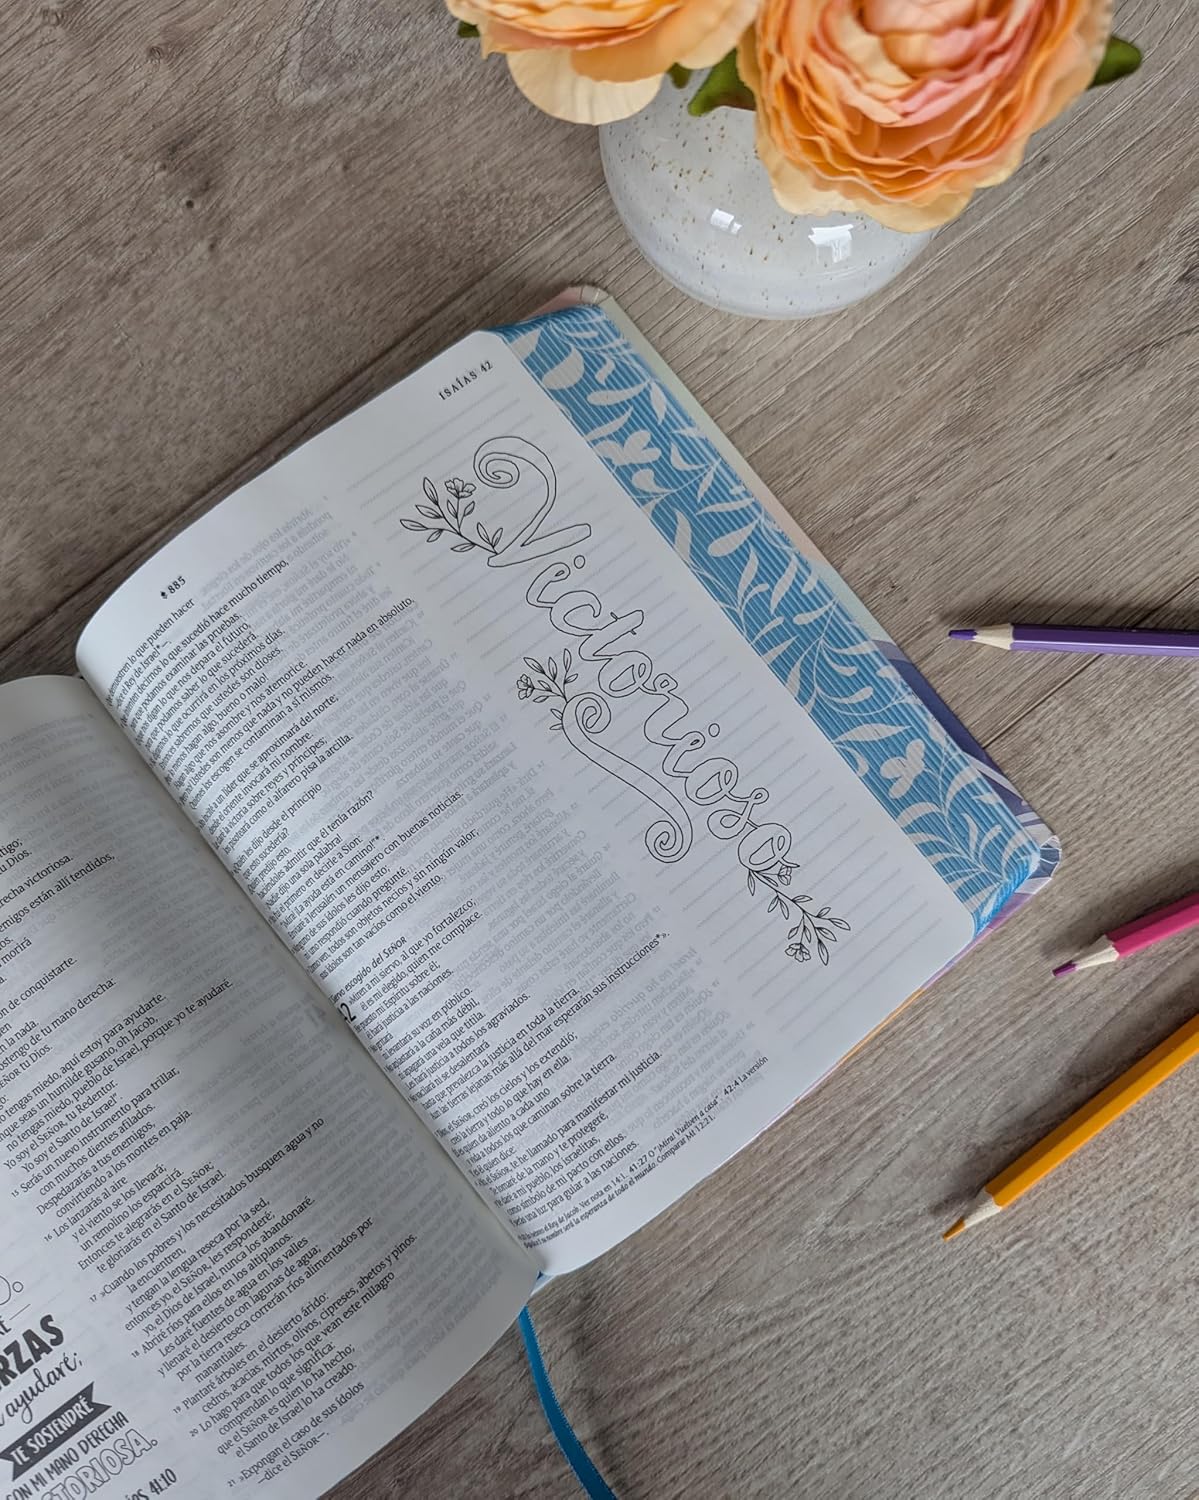 tigo;
tu Dios.
derecha victoriosa.
emigos están allí tendidos,
morirá
n de conquistarte.
en la nada.
ostengo de tu mano derecha:
SEÑOR tu Dios.
tengas miedo, aquí estoy para ayudarte.
nque seas un humilde gusano, oh Jacob,
no tengas miedo, pueblo de Israel, porque yo te ayudaré.
Yo soy el SEÑOR, tu Redentor.
Yo soy el Santo de Israel".
15 Serás un nuevo instrumento para trillar,
con muchos dientes afilados.
Despedazarás a tus enemigos,
convirtiendo a los montes en paja.
16 Los lanzarás al aire
y el viento se los llevará;
un remolino los esparcirá.
Entonces te alegrarás en el SEÑOR;
te gloriarás en el Santo de Israel.
17 »Cuando los pobres y los necesitados busquen agua y no
la encuentren,
y tengan la lengua reseca por la sed,
entonces yo, el SEÑOR, les responderé;
yo, el Dios de Israel, nunca los abandonaré.
18 Abriré ríos para ellos en los altiplanos.
Les daré fuentes de agua en los valles
y llenaré el desierto con lagunas de agua;
por la tierra reseca correrán ríos alimentados por
manantiales.
19 Plantaré árboles en el desierto árido:
cedros, acacias, mirtos, olivos, cipreses, abetos y pinos.
20 Lo hago para que todos los que vean este milagro
comprendan lo que significa:
que el SEÑOR es quien lo ha hecho;
el Santo de Israel lo ha creado.
21 »Expongan el caso de sus ídolos
—dice el SEÑOR—.
RÉ
RZAS
ayudaré;
TE SOSTENDRÉ
CON MI MANO DERECHA
TORIOSA.
ÍAS 41:10
885
ISAÍAS 42
Victorioso
demuestren lo que pueden hacer
dice el Rey de Israel*—.
decirnos lo que sucedió hace mucho tiempo,
que podamos examinar las pruebas.
nos digan lo que nos depara el futuro,
que podamos saber lo que sucederá.
lo que ocurrirá en los próximos días.
sabremos que ustedes son dioses.
menos hagan algo, bueno o malo!
algo que nos asombre y nos atemorice.
ustedes son menos que nada y no pueden hacer nada en absoluto,
los escogen se contaminan a sí mismos.
a un líder que se aproximará del norte;
desde el oriente invocará mi nombre.
la victoria sobre reyes y príncipes;
los pisoteará como el alfarero pisa la arcilla.
les dijo desde el principio
que esto sucedería?
predijo esto,
haciéndoles admitir que él tenía razón?
dijo una sola palabra!
el primero en decirle a Sion:
¡La ayuda está en camino!"*
a Jerusalén un mensajero con buenas noticias.
de sus ídolos les dijo esto;
uno respondió cuando pregunté.
ven, todos son objetos necios y sin ningún valor;
sus ídolos son tan vacíos como el viento.
escogido del SEÑOR
a mi siervo, al que yo fortalezco;
él es mi elegido, quien me complace.
puesto mi Espíritu sobre él;
él hará justicia a las naciones.
ni levantará su voz en público.
aplastará a la caña más débil,
ni apagará una vela que titila.
Les hará justicia a todos los agraviados.
vacilará ni se desalentará
hasta que prevalezca la justicia en toda la tierra.
las tierras lejanas más allá del mar esperarán sus instrucciones*».
el SEÑOR, creó los cielos y los extendió;
creó la tierra y todo lo que hay en ella.
Él es quien da aliento a cada uno
y vida a todos los que caminan sobre la tierra.
es quien dice:
el SEÑOR, te he llamado para manifestar mi justicia.
Te tomaré de la mano y te protegeré,
y te daré a mi pueblo, los israelitas,
como símbolo de mi pacto con ellos.
una luz para guiar a las naciones.
el Rey de Jacob. Ver nota en 14:1. 41:27 O "¡Mira! Vuelven a casa". 42:4 La versión
su nombre será la esperanza de todo el mundo. Comparar Mt 12:21.